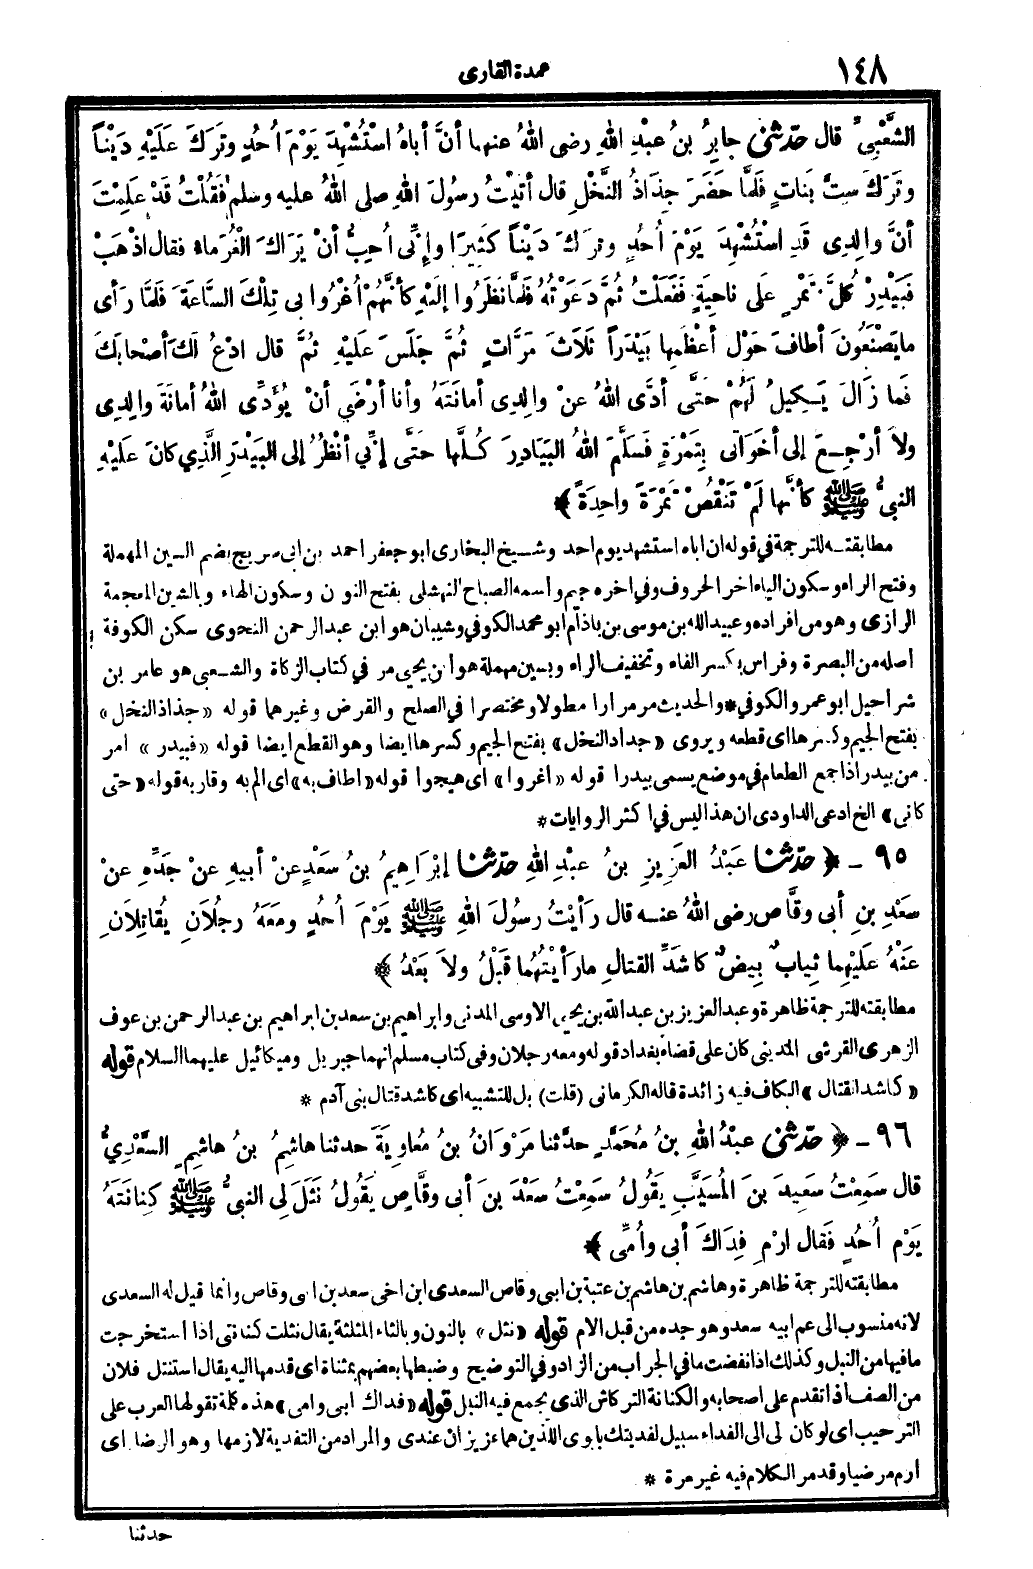 ١٤٨
عمدة القارى
الشَّعْبِيِّ قال حدّثنى جابِرُ بنُ عبْدِ اللهِ رضى اللهُ عنهما أنَّ أباهُ اسْتُشْهِدَ يَوْمَ أُحُدٍ وتَرَكَ عَلَيْهِ دَيْنَاً
وتَرَكَ سِتَّ بَنَاتٍ فَلَمَّا حَضَرَ جِذَاذُ النَّخْلِ قال أتَيْتُ رسُولَ اللهِ صلى اللهُ عليه وسلم فَقُلْتُ قَدْ عَلِمْتَ
أنَّ والِدِى قَدِ اسْتُشْهِدَ يَوْمَ أُحُدٍ وتَرَكَ دَيْناً كَثِيرَا وإنِّى أُحِبُّ أنْ يَرَاكَ الْغُرَماءُ فقال اذْهَبْ
فَبَيْدِرْ كُلَّ تَمْرٍ عَلَى ناحِيَةٍ فَفَعَلْتُ ثُمَّ دَعَوْتُهُ فَلَمَّا نَظَرُوا إلَيْهِ كأنَّهُمْ أُغْرُوا بِى تِلْكَ السَّاعَةَ فَلَمَّا رَأى
مايَصْنَعُونَ أطافَ حَوْلَ أعْظَمِها بَيْدَراً ثَلَاثَ مَرَّاتٍ ثُمَّ جَلَسَ عَلَيْهِ ثُمَّ قال ادْعُ لَكَ أصْحابَكَ
فَما زَالَ يَكِيلُ لَهُمْ حَتَّى أدَّى اللهُ عنْ والِدِى أمانَتَهُ وأنا أرْضَى أنْ يُؤَدِّىَ اللهُ أمانَةَ والِدِى
ولاَ أرْجِعَ إلى أخَوَاتى بِتَمْرَةٍ فَسَلَّمَ اللهُ البَيادِرَ كُلَّها حَتَّى إنِّى أنْظُرُ إلى البَيْدَرِ الَّذِي كانَ عَلَيْهِ
النبىُّ ﷺ كأنَّها لَمْ تَنْقُصْ تَمْرَةً واحِدَةً ﴾
مطابقته للترجمة فى قوله ان اباه استشهد يوم احد وشيخ البخارى ابو جعفر احمد بن ابى سريج بضم السين المهملة
وفتح الراء وسكون الياء اخر الحروف وفى اخره جيم واسمه الصباح النهشلى بفتح النون وسكون الهاء وبالشين المعجمة
الرازى وهو من افراده وعبيد الله بن موسى بن باذام ابو محمد الكوفى وشيبان هو ابن عبد الرحمن النحوى سكن الكوفة
اصله من البصرة وفراس بكسر الفاء وتخفيف الراء وبسين مهملة هو ابن يحيى مر فى كتاب الزكاة والشعبى هو عامر بن
شراحيل ابو عمرو الكوفى * والحديث مر مرارا مطولا ومختصرا فى الصلح والقرض وغيرهما قوله «جذاذ النخل»
بفتح الجيم وكسرها اى قطعه ويروى «جداد النخل» بفتح الجيم وكسرها ايضا وهو القطع ايضا قوله «فبيدر» امر
من بيدر اذا جمع الطعام فى موضع يسمى بيدرا قوله «اغروا» اى هيجوا قوله «اطاف به» اى الم به وقاربه قوله «حتى
كانى» الخ ادعى الداودى ان هذا ليس فى اكثر الروايات *
٩٥ - ﴿ حدّثنا عَبْدُ العَزِيزِ بنُ عبْدِ اللهِ حدّثنا إبْرَاهِيمُ بنُ سَعْدٍ عنْ أبيهِ عنْ جَدِّهِ عنْ
سَعْدِ بنِ أبى وقَّاصٍ رضى اللهُ عنه قال رَأيْتُ رسُولَ اللهِ ﷺ يَوْمَ أُحُدٍ ومَعَهُ رجُلاَنِ يُقاتِلاَنِ
عَنْهُ عَلَيْهِما ثِيابٌ بِيضٌ كاشَدِّ القتالِ مارَأيْتُهُما قَبْلُ ولاَ بَعْدُ ﴾
مطابقته للترجمة ظاهرة وعبد العزيز بن عبد الله بن يحيى الاوسى المدنى وابراهيم بن سعد بن ابراهيم بن عبد الرحمن بن عوف
الزهرى القرشى المدينى كان على قضاء بغداد قوله ومعه رجلان وفى كتاب مسلم انهما جبريل وميكائيل عليهما السلام قوله
«كاشد القتال» الكاف فيه زائدة قاله الكرمانى (قلت) بل للتشبيه اى كاشد قتال بنى آدم *
٩٦ - ﴿ حدّثنى عبْدُ اللهِ بنُ مُحَمَّدٍ حدَّثنا مَرْوَانُ بنُ مُعاوِيَةَ حدثنا هاشِمُ بنُ هاشِمٍ السَّعْدِيُّ
قال سَمِعْتُ سَعِيدَ بنَ المُسَيَّبِ يَقُولُ سَمِعْتُ سَعْدَ بنَ أبى وقَّاصٍ يَقُولُ نَثَلَ لِى النبىُّ ﷺ كِنانَتَهُ
يَوْمَ أُحُدٍ فَقال ارْمِ فِدَاكَ أبى وأُمِّى ﴾
مطابقته للترجمة ظاهرة وهاشم بن هاشم بن عتبة بن ابى وقاص السعدى ابن اخى سعد بن ابى وقاص وانما قيل له السعدى
لانه منسوب الى عم ابيه سعد وهو جده من قبل الام قوله «نثل» بالنون وبالثاء المثلثة يقال نثلت كنانتى اذا استخرجت
مافيها من النبل وكذلك اذا نفضت مافى الجراب من الزاد وفى التوضيح وضبطها بعضهم بمثناة اى قدمها اليه يقال استنتل فلان
من الصف اذا تقدم على اصحابه والكنانة التركاش الذى يجمع فيه النبل قوله «فداك ابى وامى» هذه كلمة تقولها العرب على
الترحيب اى لو كان لى الى الفداء سبيل لفديتك بابوى اللذين هما عزيزان عندى والمراد من التفدية لازمها وهو الرضا اى
ارم مرضيا وقد مر الكلام فيه غير مرة *
حدثنا